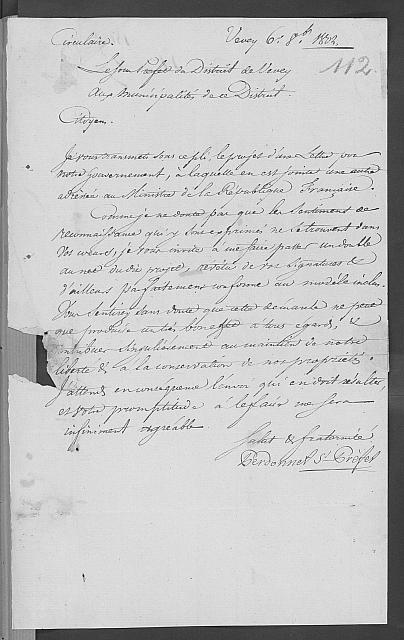 Circulaire.
Vevey 6.e 8.bre 1802.
112.
Le Sous Préfet du District de Vevey
Aux Municipalités de ce District.
Citoyens.
Je vous transmets sous ce pli, le projet d'une Lettre pour
notre gouvernement, à laquelle en est jointe une autre
adressée au Ministre de la République Française.
Comme je ne doute pas que les Sentimens de
reconnaissance qui y sont exprimés ne se trouvent dans
vos cœurs, je vous invite à me faire passer un double
du dit projet, revêtu de vos signatures &
d'ailleurs parfaitement conforme au modèle inclus.
Vous sentirez sans doute que cette demande ne peut
que produire un très bon effet à tous égards, &
contribuer singulièrement au maintien de notre
liberté & à la conservation de nos propriétés.
J'attends en conséquence l'envoi qui en doit résulter,
et votre promptitude à le faire me sera
infiniment agréable.
Salut & fraternité
Perdonnet S.s Préfet